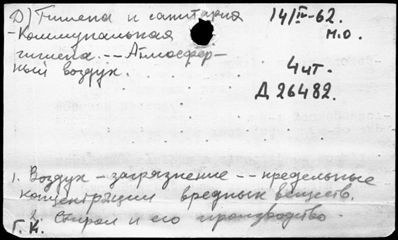 Д) Гигиена и санитария 14/IV-62.
- Коммунальная М.О.
гигиена. -- Атмосфер-
ный воздух. 4 чт.
Д 26482.
1. Воздух - загрязнение -- предельные
концентрации вредных веществ.
2. Стирол и его производство.
Г. К.